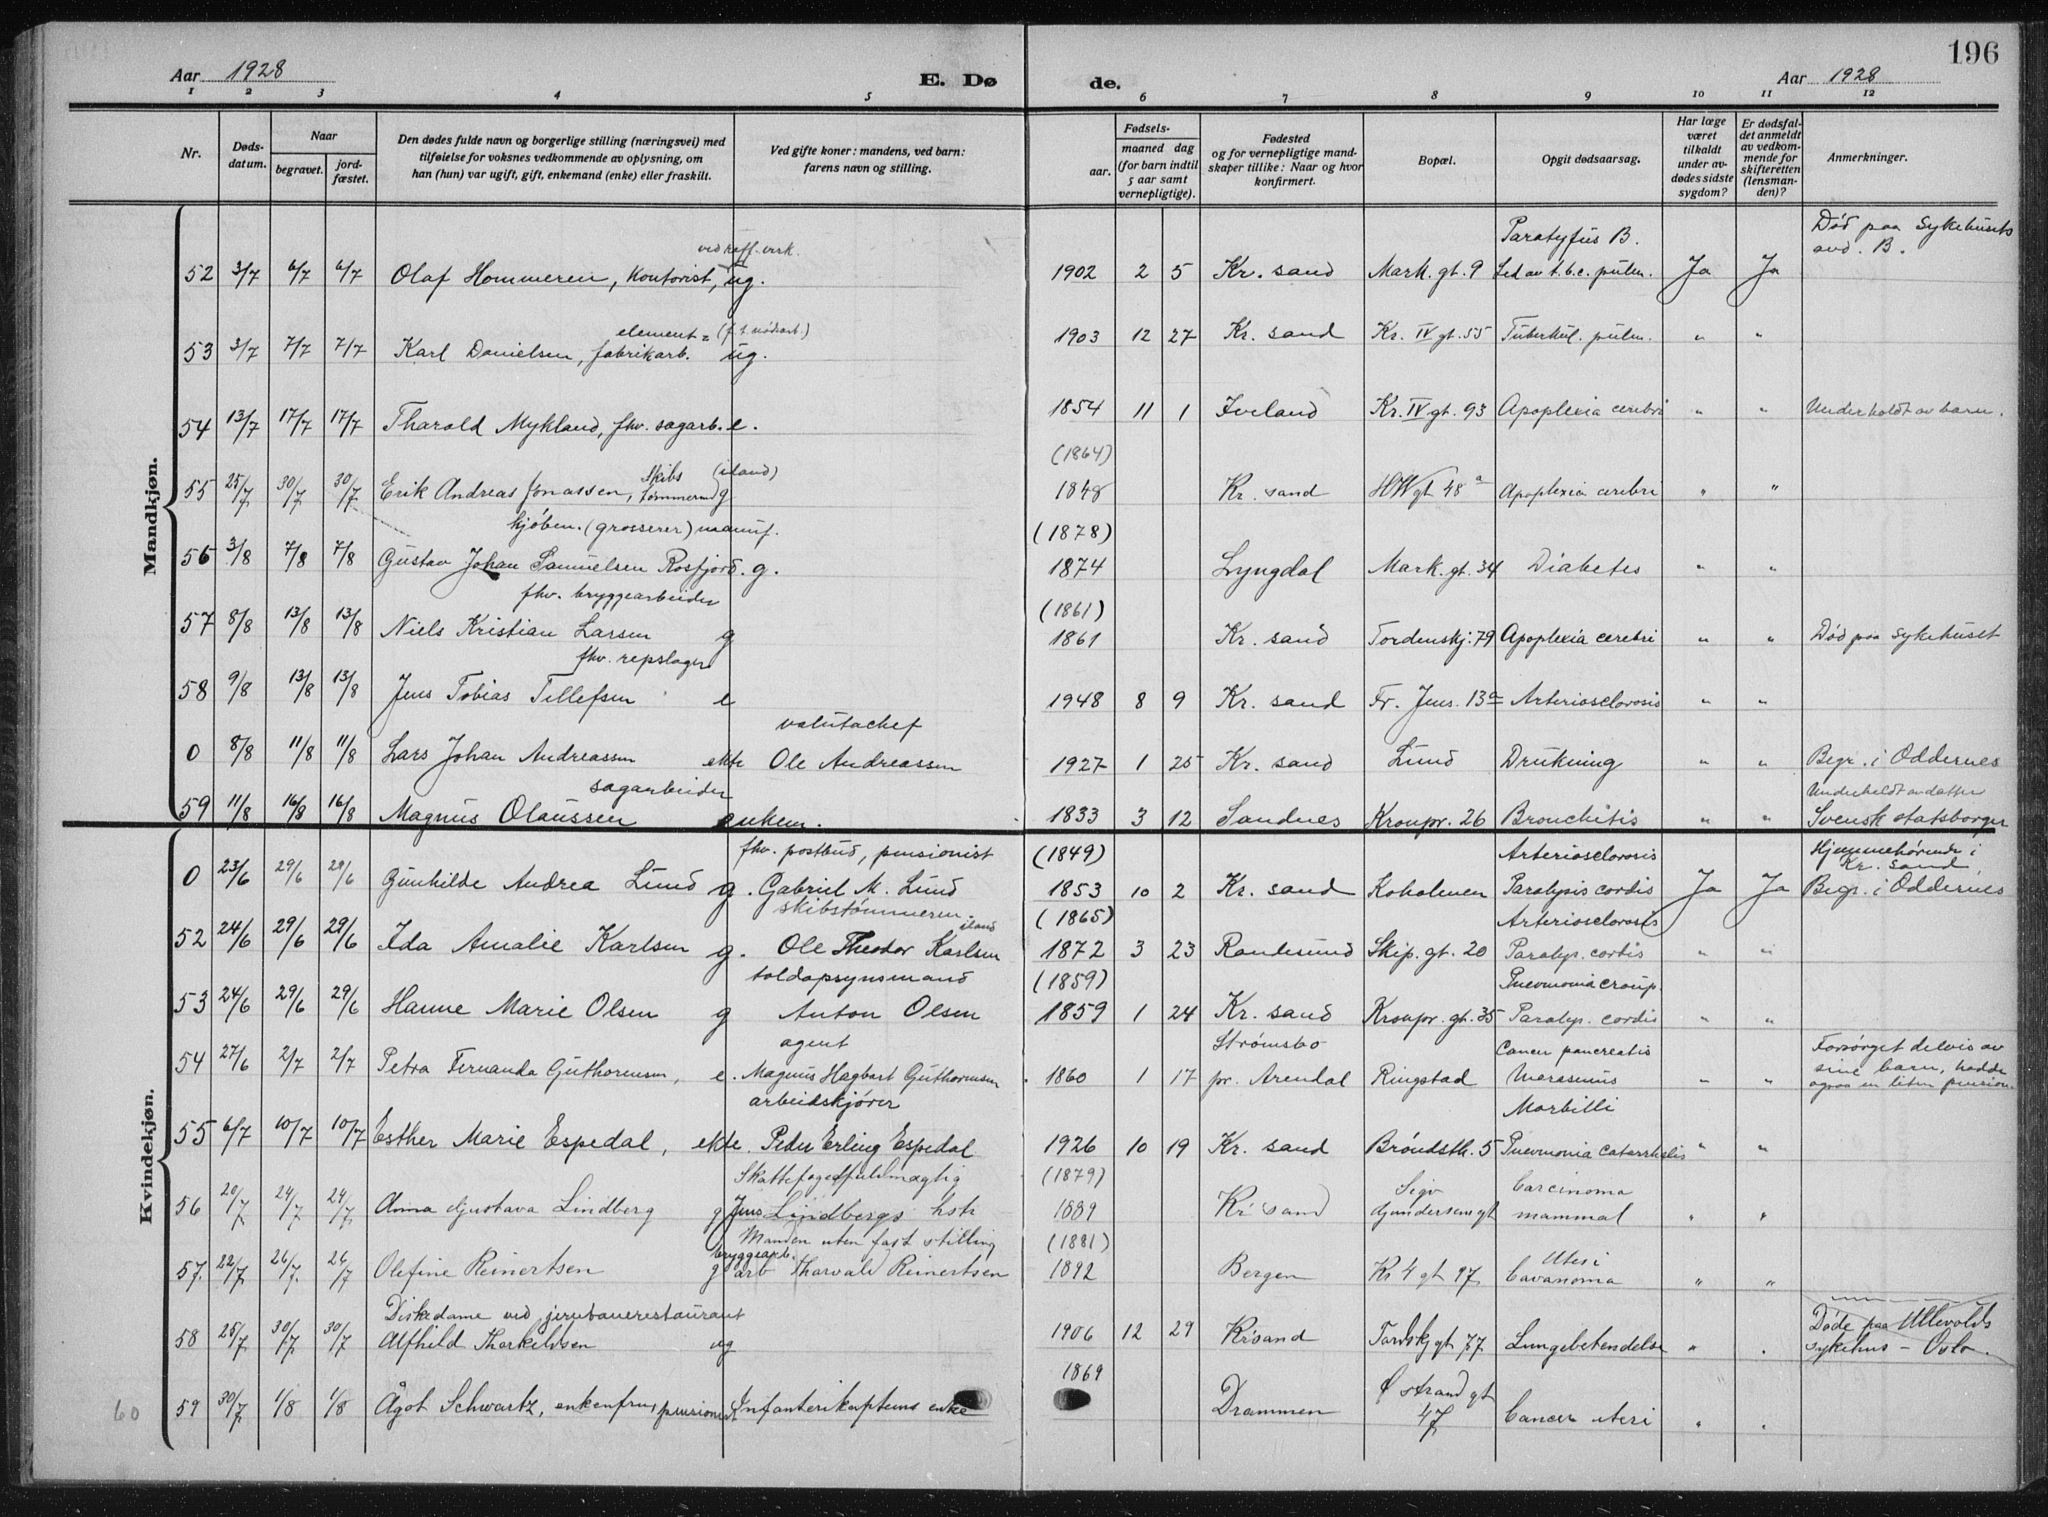 196
Aar 1928 E. Døde. Aar 1928
1 2 3 4 5 6 7 8 9 10 11 12
Nr. Døds-datum. Naar begravet. jord-fæstet. Den dødes fulde navn og borgerlige stilling (næringsvei) med tilføielse for voksnes vedkommende av oplysning, om han (hun) var ugift, gift, enkemand (enke) eller fraskilt. Ved gifte koner: mandens, ved barn: farens navn og stilling. Fødsels- aar. maaned dag (for barn indtil 5 aar samt vernepligtige). Fødested og for vernepligtige mandskaper tillike: Naar og hvor konfirmert. Bopæl. Opgit dødsaarsag. Har læge været tilkaldt under avdødes sidste sygdom? Er dødsfaldet anmeldt av vedkommende for skifteretten (lensmanden)? Anmerkninger.
Mandkjøn.
ved raff. verk. Paratyfus B. Død paa Sykehusets avd. B.
52 3/7 6/7 6/7 Olaf Hommeren, kontorist, ug. 1902 2 5 Kr. sand Mark. gt. 9 Led av t.b.c. pulm. Ja Ja
element= (f.t. nødsarb.)
53 3/7 7/7 7/7 Karl Danielsen, fabrikarb. ug. 1903 12 27 Kr. sand Kr. IV gt. 55 Tuberkul. pulm. " "
54 13/7 17/7 17/7 Tharald Mykland, fhv. sagarb. e. 1854 11 1 Iveland Kr. IV gt. 93 Apoplexia cerebri " " Underholdt av barn.
Skibs (iland) (1864)
55 25/7 30/7 30/7 Erik Andreas Jonassen, tømmermd g 1848 Kr. sand HW gt 48a Apoplexia cerebri " "
kjøbm. (grosserer) manuf. (1878)
56 3/8 7/8 7/8 Gustav Johan Samuelsen Rosfjord. g. 1874 Lyngdal Mark. gt. 34 Diabetes " "
fhv. bryggearbeider (1861)
57 8/8 13/8 13/8 Niels Kristian Larsen g 1861 Kr. sand Tordenskj. 79 Apoplexia cerebri " " Død paa Sykehuset
fhv. repslager
58 9/8 13/8 13/8 Jens Tobias Tellefsen e 1948 8 9 Kr. sand Fr. Jens. 13a Arteriosclorosis " "
valutachef
0 8/8 11/8 11/8 Lars Johan Andreassen ekte Ole Andreassen 1927 1 25 Kr. sand Lund Drukning " " Begr. i Oddernes
sagarbeider Underholdt av datter
59 11/8 16/8 16/8 Magnus Olaussen enkem. 1833 3 12 Sandnes Kronpr. 26 Bronchitis " " Svensk statsborger
Kvindekjøn.
fhv. postbud, pensionist (1849) Arteriosclorosis Hjemmehørende i Kr. sand,
0 23/6 29/6 29/6 Gunhilde Andrea Lund g. Gabriel M. Lund 1853 10 2 Kr. sand Kokolmen Paralysis cordis Ja Ja Begr. i Oddernes
skibstømmerm. iland (1865) Arteriosclorosis
52 24/6 29/6 29/6 Ida Amalie Karlsen g. Ole Theodor Karlsen 1872 3 23 Randesund Skip. gt. 20 Paralys. cordis " "
toldopsynsmand (1859) Pneumonia croup.
53 24/6 29/6 29/6 Hanne Marie Olsen g Anton Olsen 1859 1 24 Kr. sand Kronpr. gt. 35 Paralys. cordis " "
agent Strømsbo Cancer pancreatis Forsørget delvis av
54 27/6 2/7 2/7 Petra Fernanda Guthormsen, e. Magnus Hagbart Guthormsen 1860 1 17 pr. Arendal Ringstad Marasmus " " sine barn, hadde ogsaa en liten pension.
arbeidskjører Morbilli
55 6/7 10/7 10/7 Esther Marie Espedal, ekte. Peder Erling Espedal 1926 10 19 Kr. sand Brøndsth. 5 Pneumonia catarrhalis " "
Skattefogedfuldmægtig (1879) Sigv Carcinoma
56 20/7 24/7 24/7 Anna Gustava Lindberg g Jens Lindbergs hstr 1889 Kr sand Gundersens gt mammal " "
Manden uten fast stilling (1881)
bryggearb. Uteri
57. 22/7 26/7. 26/7 Olefine Reinertsen g arb Thorvald Reinertsen 1892 Bergen Kr 4 gt 97 Cavanoma " "
Diskedame ved jernbanerestaurant Døde paa Ullevolds
58 25/7 30/7 30/7 Alfhild Thorkildsen ug 1906 12 29 Kr.sand Tordskj gt 77 Lungebetendelse " " sykehus - Oslo.
1869 Ø strand gt
60 59 30/7 1/8 1/8 Ågot Schwartz, enkefru, pensionist Infanterikapteins enke Drammen 47 Cancer uteri " "